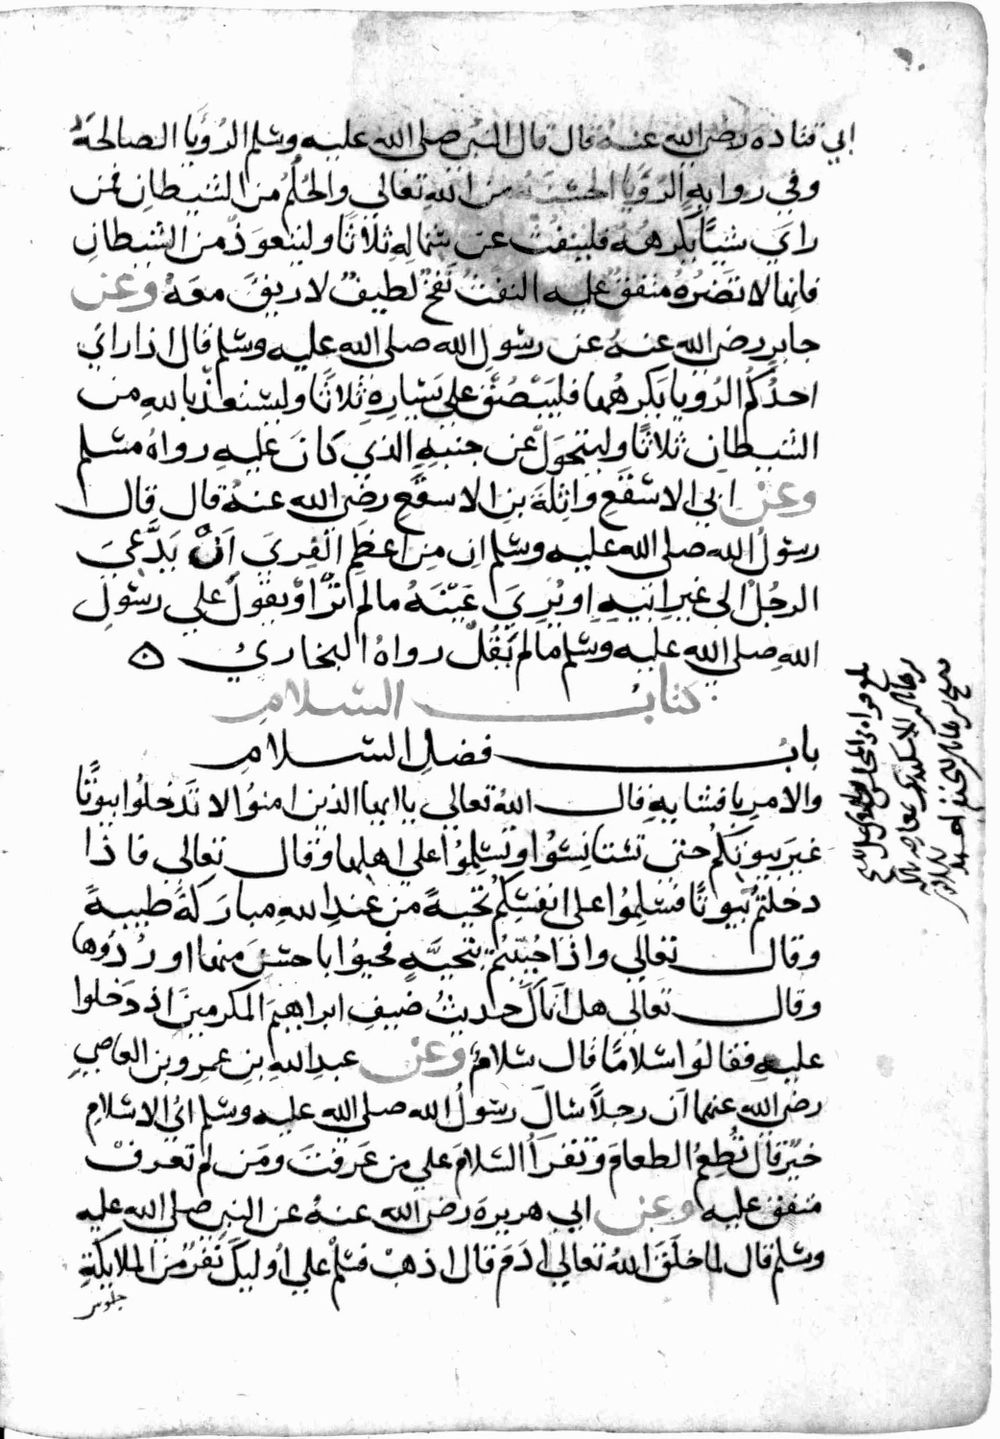 ابي قتاده رضي الله عنه قال قال النبي صلى الله عليه وسلم الرُؤيا الصالحة
وفي روايه الرُؤيا الحسنة من الله تعالى والحُلُمُ من الشيطان فمن
راي شيًا يكرهُه فلينفث عن شماله ثلاثًا وليتعوذ من الشيطان
فانها لا تضرُهُ متفق عليه النفثُ نَفخٌ لطيفٌ لا ريق معهُ وعن
جابرٍ رضي الله عنهُ عن رسول الله صلى الله عليه وسلم قال اذا راي
احدُكُم الرُويا يكرهُها فليبصُق على يَسَاره ثلاثًا وليستعذ بالله من
الشيطان ثلاثًا وليتحوّل عن جنبه الذي كان عليه رواهُ مسلم
وعن ابي الاسقع واثلة بن الاسقع رضي الله عنهُ قال قال
رسولُ الله صلى الله عليه وسلم ان من اعظم الفِري اَنْ يَدَّعيَ
الرجلُ الى غير ابيه او يُريَ عَيْنَهُ ما لم ترَ او يقولُ على رسول
الله صلى الله عليه وسلم ما لم يَقُلْ رواهُ البخاري ه
كتاب السلام
بابُ فضل السلام
والامر بافشايه قال اللهُ تعالى يا ايها الذين امنُوا لا تَدخلُوا بيوتًا
غيرَ بيوتكُم حتى تستانِسُوا وتُسَلِمُوا على اهلها وقال تعالى فاذا
دخلتُم بيوتًا فسلمُوا على انفسكُم تحيةً من عند الله مباركةً طيبةً
وقال تعالى واذا حُيّيتُم بتحيَّهٍ فحيُوا باحسنَ منها او رُدُوها
وقال تعالى هل اتاكَ حديثُ ضيف ابراهيمَ المكرمينَ اذ دَخلوا
عليه فقالُوا سلامًا قال سلامٌ وعن عبد الله بن عمرو بن العاصي
رضي الله عنهما ان رجلاً سالَ رسولُ الله صلى الله عليه وسلم ايُ الاسلام
خيرٌ قال تُطعمُ الطعامَ وتقرأُ السلامَ على من عَرفتَ ومَن لم تعرفْ
متفق عليه وعن ابي هريرة رضي الله عنهُ عن النبي صلى الله عليه
وسلم قال لما خلقَ اللهُ تعالى ادمَ قال اذهبْ فسلِّم على أُوليكَ نَفَرٌ من الملايكة
جلوس